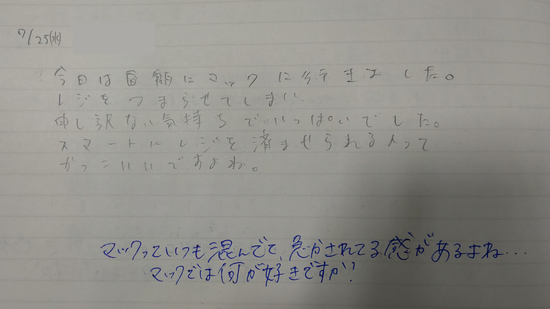 7/25(水)
今日は自朝にマックに行きました。
レジをつまらせてしまい
申し訳ない気持ちでいっぱいでした。
スマートにレジを済ませられる人って
かっこいいですよね。
マックっていつも混んでて、急かされてる感があるよね…
マックでは何が好きですか?